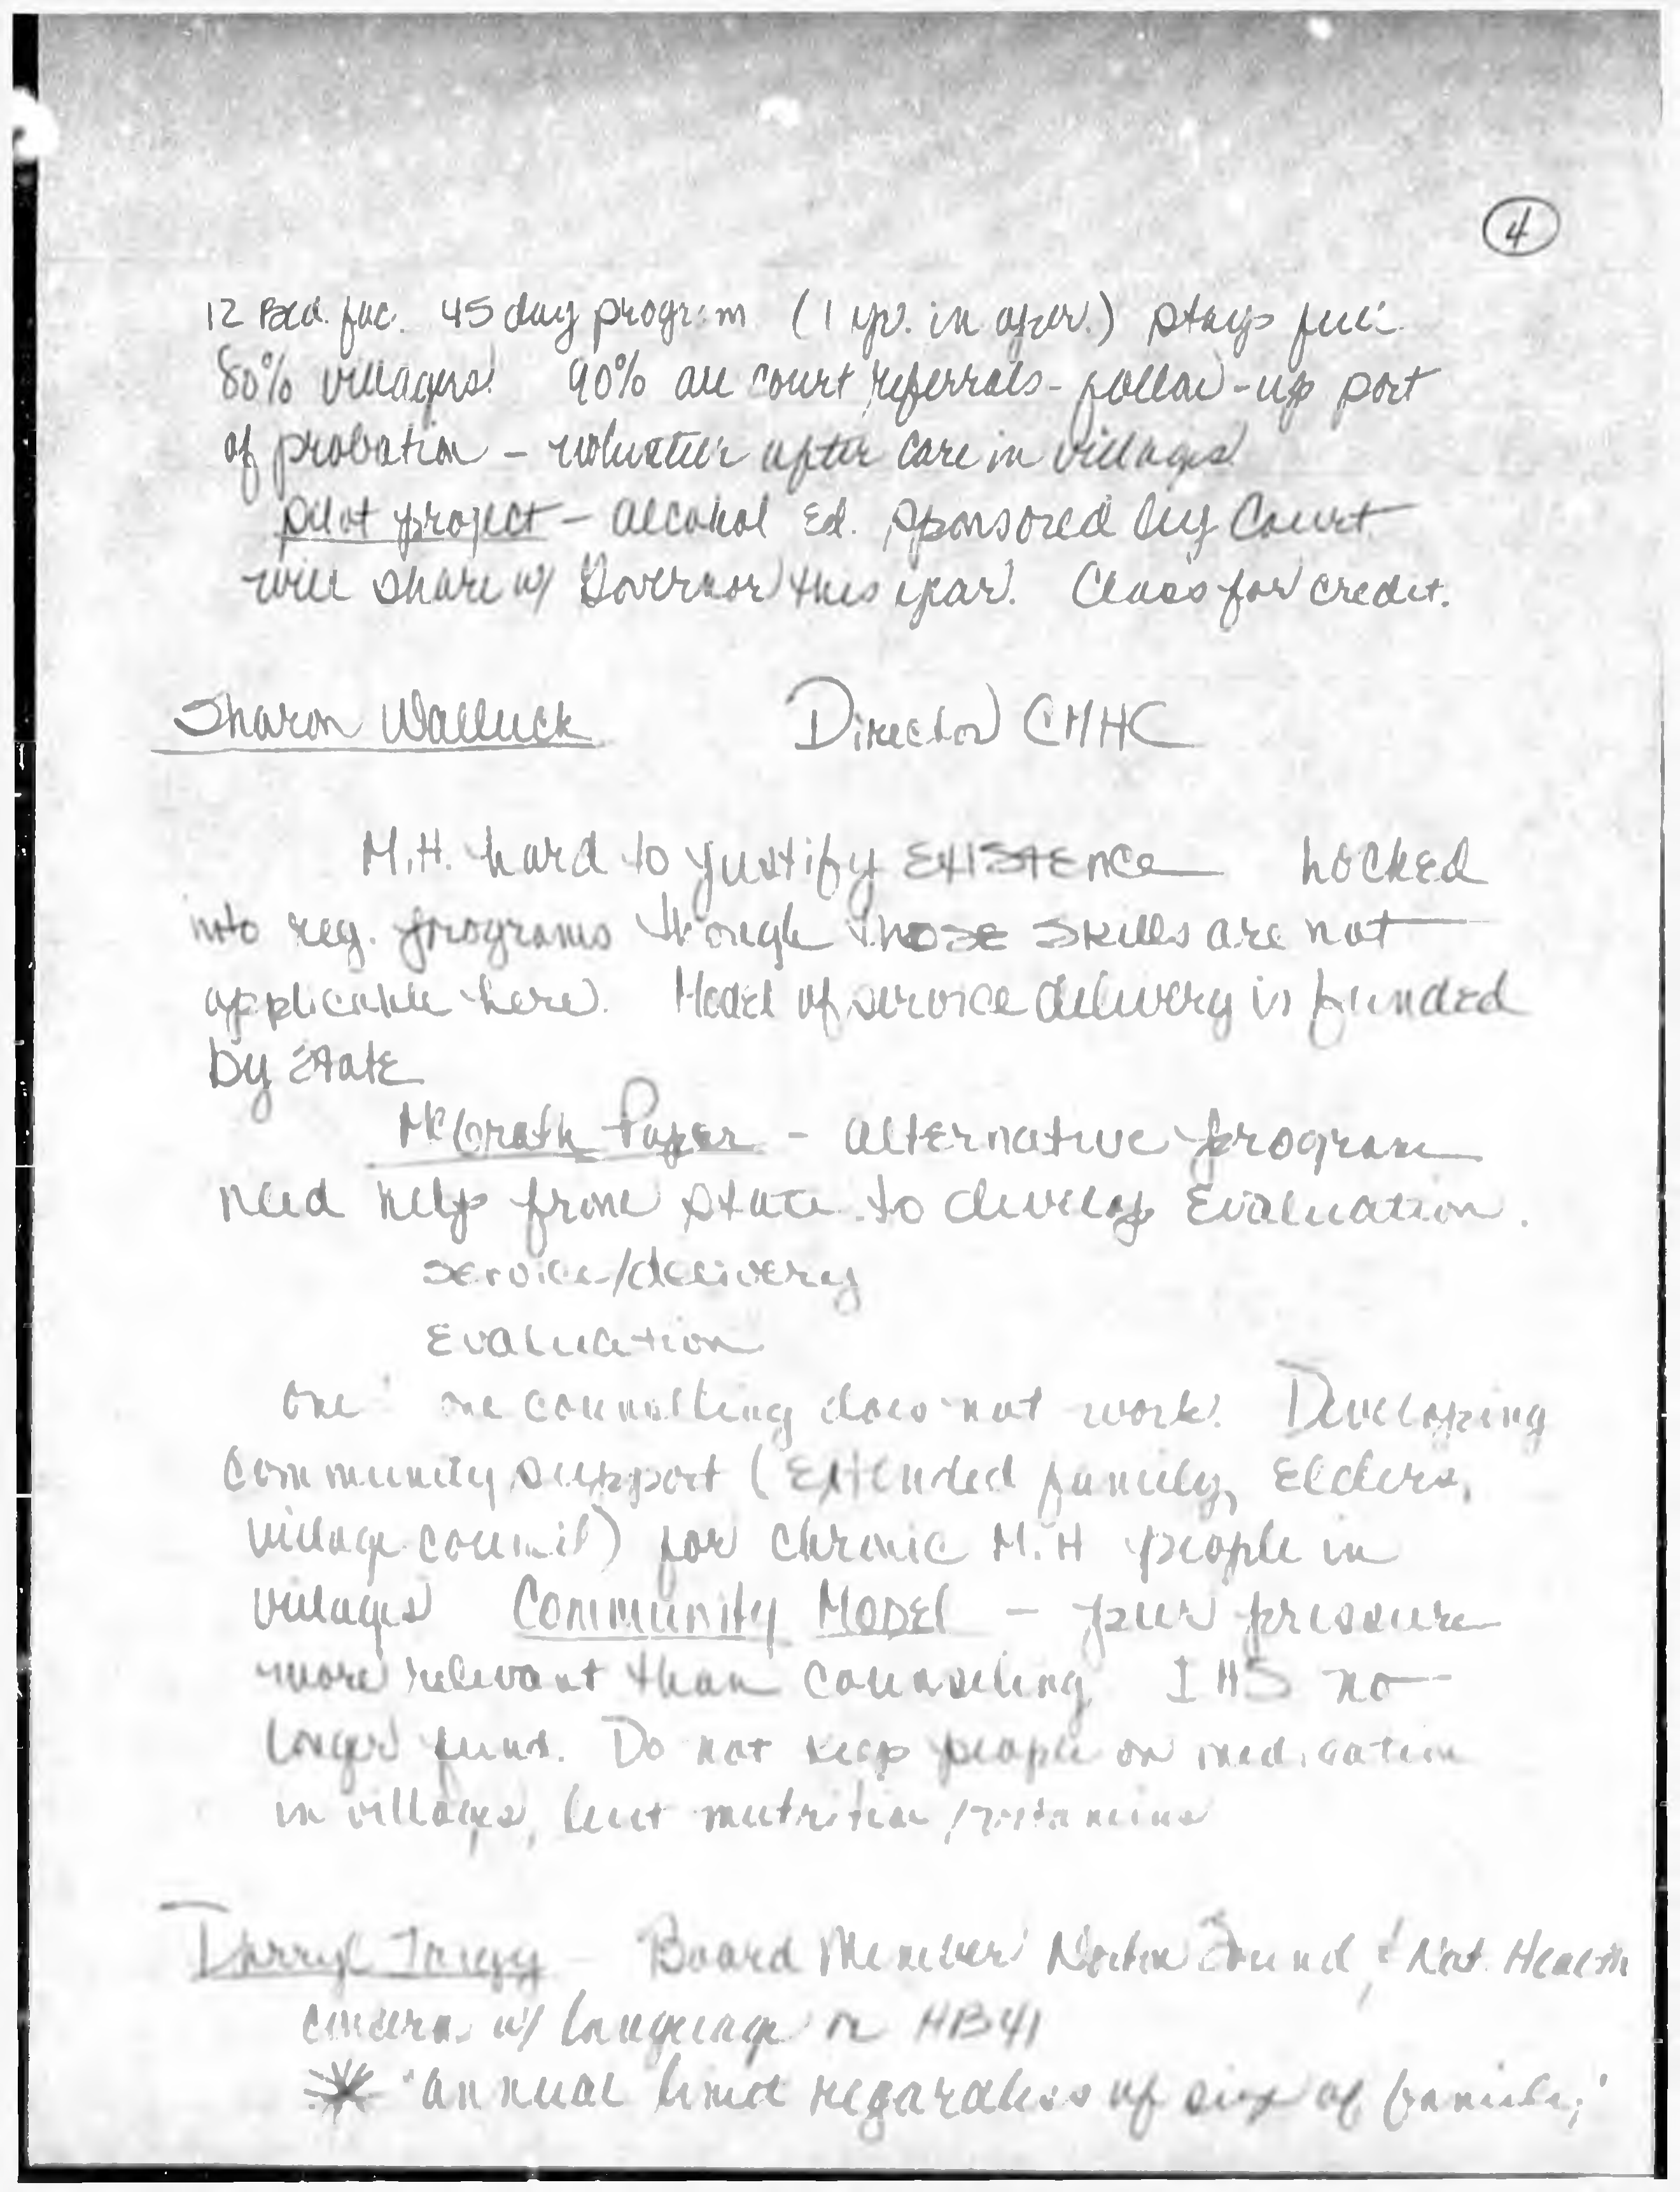 4
12 Bed. fac. 45 day program (1 yr. in oper.) stays full
80% villages! 90% are court referrals - follow-up part
of probation - volunteer after care in villages
pilot project - Alcohol Ed. sponsored by Court
will share w/ Governor this year. Class for credit.
Sharon Walluck Director CMHC
M.H. hard to justify existence hocked
into reg. programs though those skills are not
applicable here. Model of service delivery is funded
by State
McGrath Paper - alternative program
need help from state to develop Evaluation.
service/delivery
Evaluation
one one counselling does not work. Developing
community support (Extended family, Elders,
village council) for chronic M.H people in
villages Community Model - peer pressure
more relevant than counseling IHS no
longer fund. Do not keep people on medication
in villages, but nutrition/vitamins
Darryl Trigg - Board Member Norton Sound & Nat. Health
concern w/ language in HB41
"annual limit regardless of size of family"